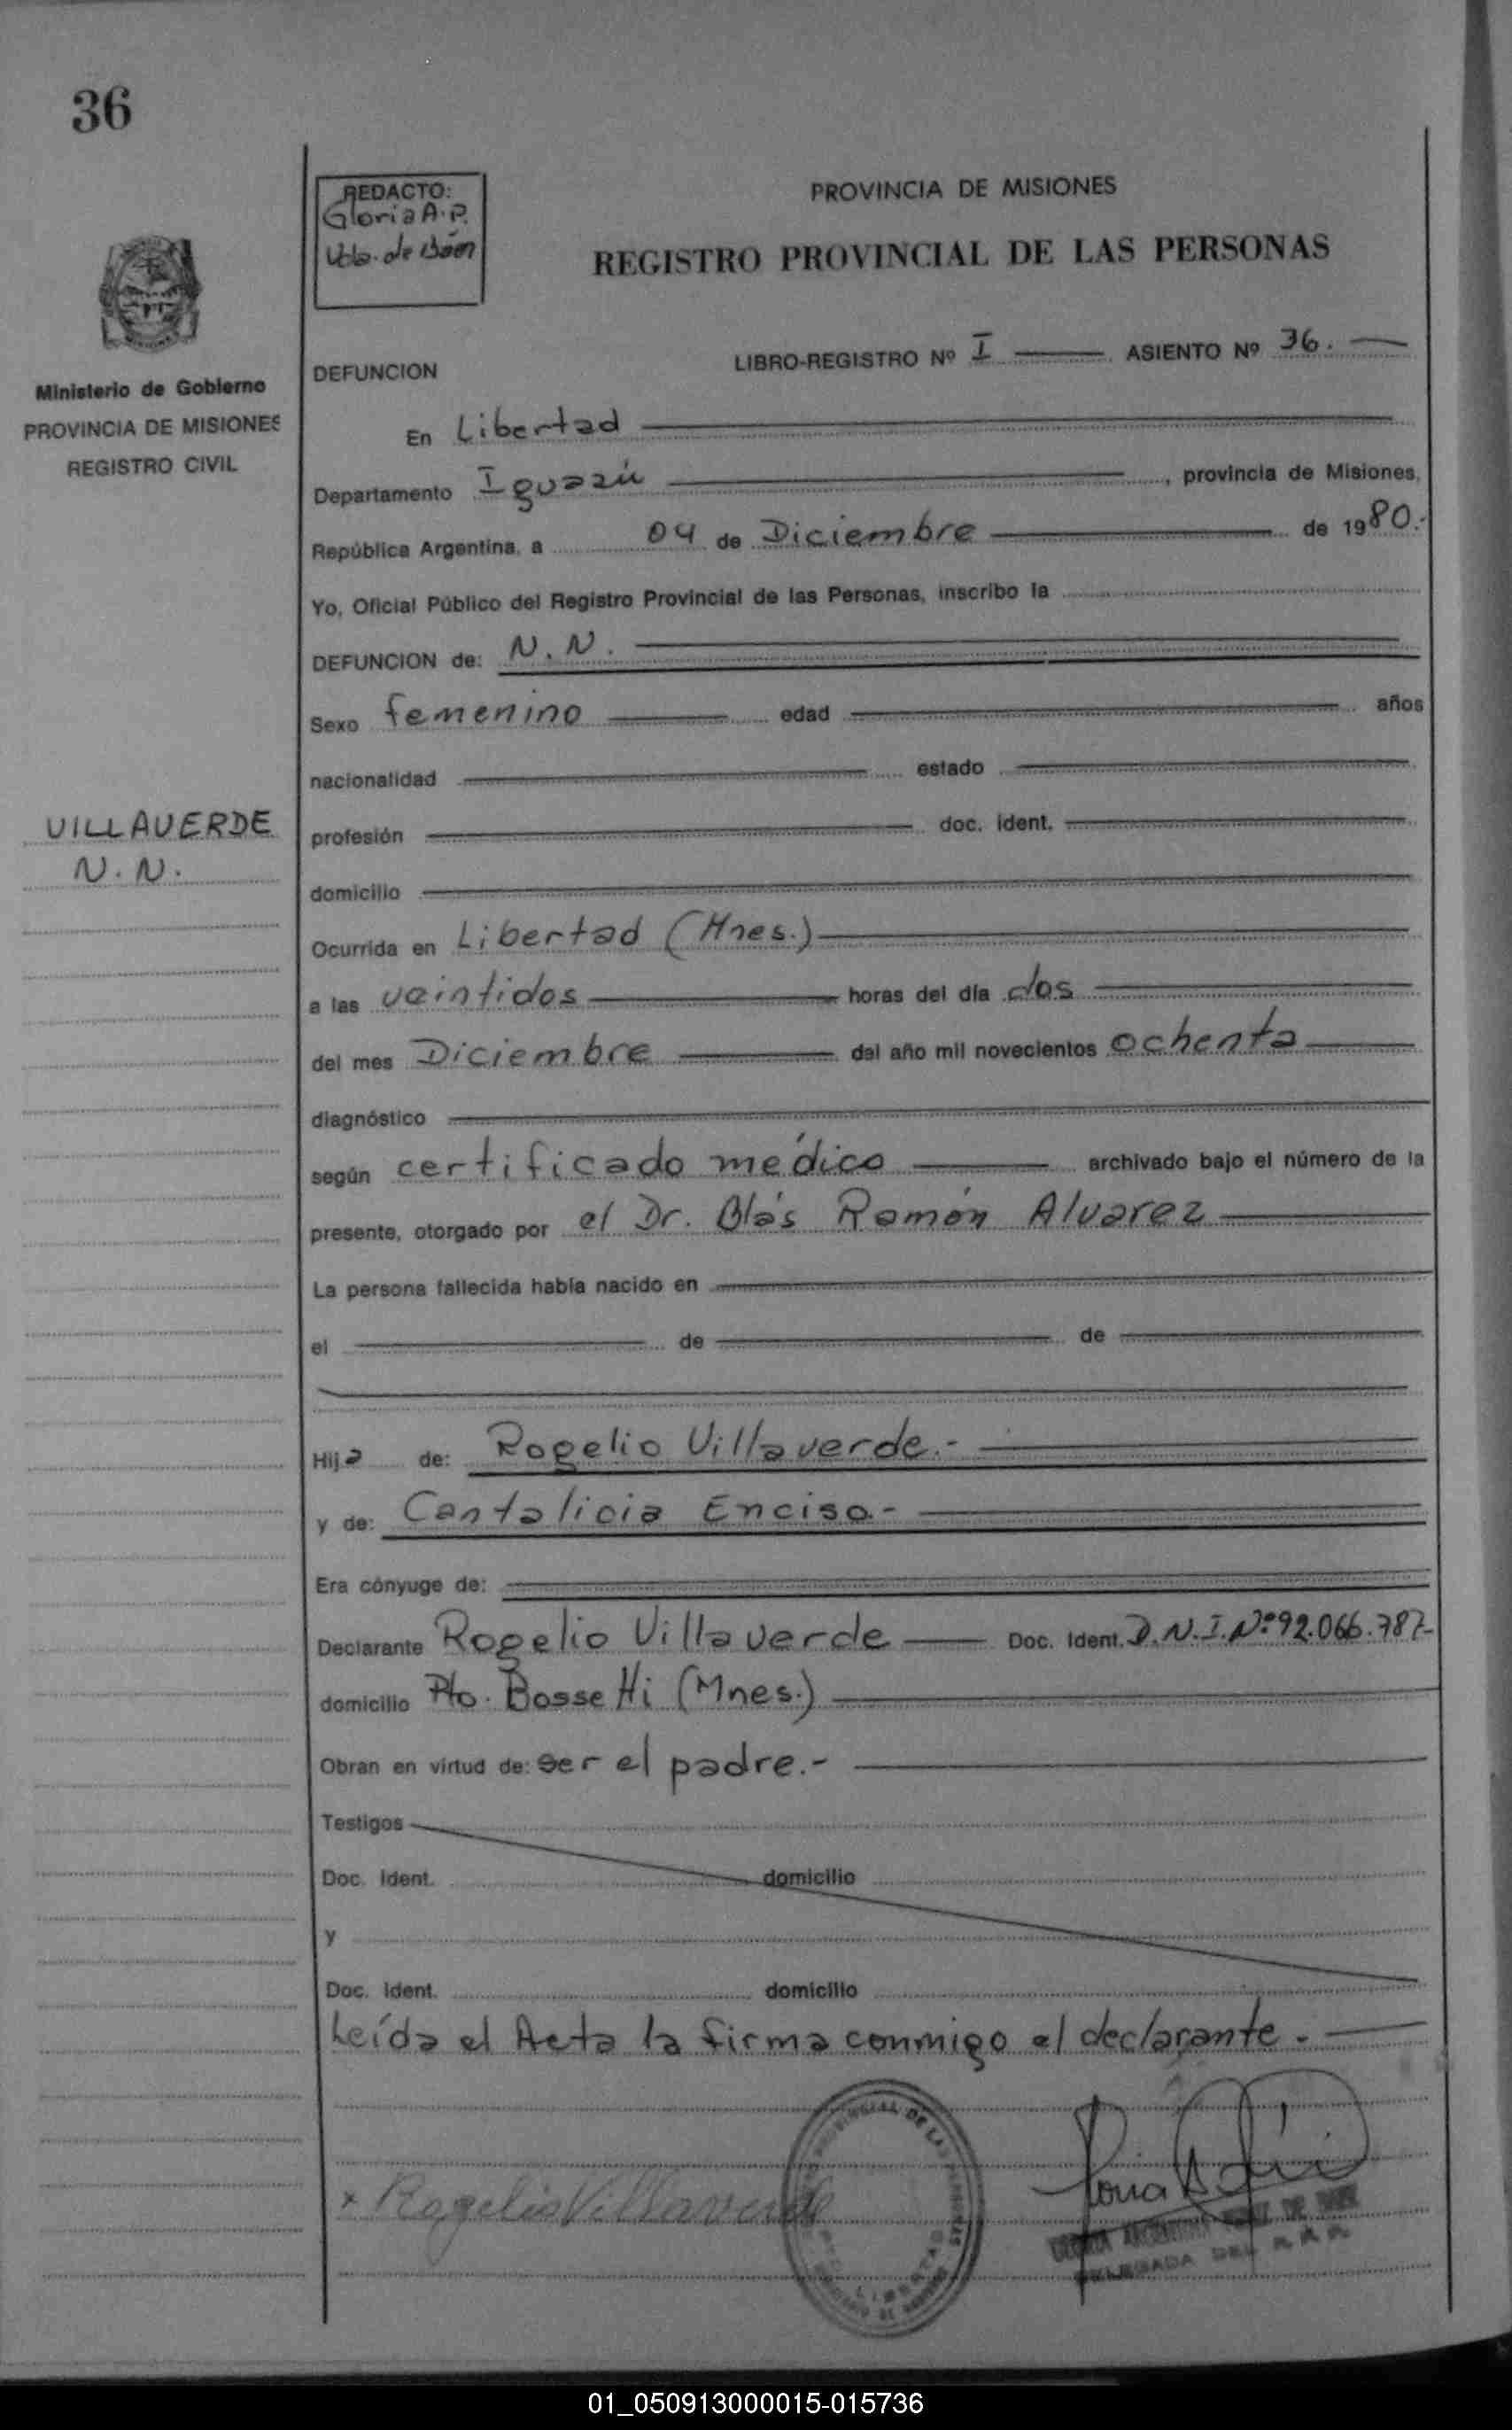 36
REDACTO:
Gloria A. P.
Vda. de Báez
PROVINCIA DE MISIONES
REGISTRO PROVINCIAL DE LAS PERSONAS
Ministerio de Gobierno
PROVINCIA DE MISIONES
REGISTRO CIVIL
DEFUNCION LIBRO-REGISTRO Nº I ASIENTO Nº 36.
En Libertad
Departamento Iguazú, provincia de Misiones,
República Argentina, a 04 de Diciembre de 1980.-
Yo, Oficial Público del Registro Provincial de las Personas, inscribo la
DEFUNCION de: N. N.
Sexo femenino edad años
nacionalidad estado
VILLAVERDE
N. N.
profesión doc. ident.
domicilio
Ocurrida en Libertad (Mnes.)
a las veintidos horas del día dos
del mes Diciembre del año mil novecientos ochenta
diagnóstico
según certificado médico archivado bajo el número de la
presente, otorgado por el Dr. Blás Ramón Alvarez
La persona fallecida había nacido en
el de de
Hija de: Rogelio Villaverde.-
y de: Cantalicia Enciso.-
Era cónyuge de:
Declarante Rogelio Villaverde Doc. Ident. D.N.I.Nº 92.066.787.-
domicilio Pto. Bossetti (Mnes.)
Obran en virtud de: ser el padre.-
Testigos
Doc. Ident. domicilio
y
Doc. Ident. domicilio
Leída el Acta la firma conmigo el declarante.
x Rogelio Villaverde
DELEGADA DEL R. P. P.
01_050913000015-015736